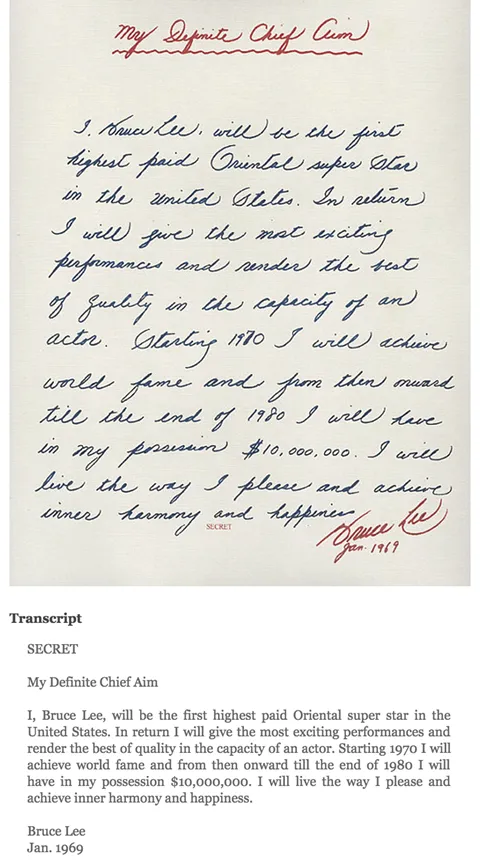 My Definite Chief Aim
I, Bruce Lee, will be the first
highest paid Oriental super star
in the United States. In return
I will give the most exciting
performances and render the best
of quality in the capacity of an
actor. Starting 1970 I will achieve
world fame and from then onward
till the end of 1980 I will have
in my possession $10,000,000. I will
live the way I please and achieve
inner harmony and happiness
SECRET
Bruce Lee
Jan. 1969
Transcript
SECRET
My Definite Chief Aim
I, Bruce Lee, will be the first highest paid Oriental super star in the
United States. In return I will give the most exciting performances and
render the best of quality in the capacity of an actor. Starting 1970 I will
achieve world fame and from then onward till the end of 1980 I will
have in my possession $10,000,000. I will live the way I please and
achieve inner harmony and happiness.
Bruce Lee
Jan. 1969